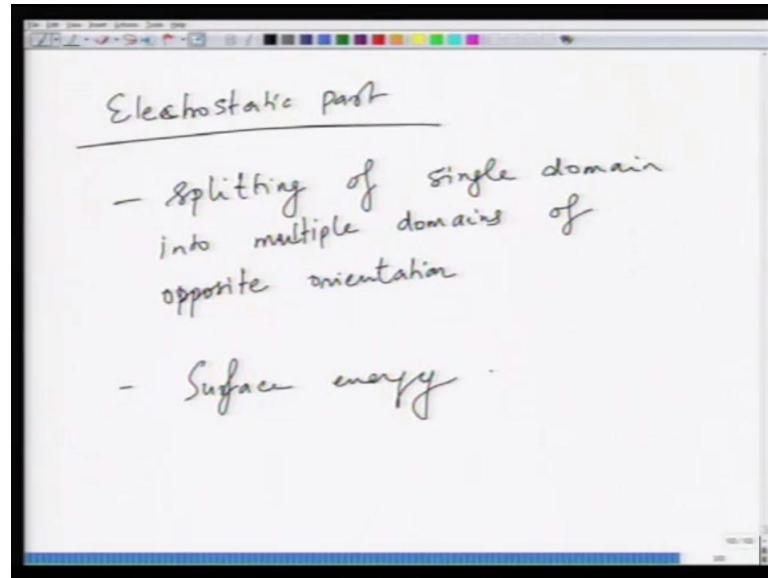 Electrostatic part
- Splitting of single domain
into multiple domains of
opposite orientation
- Surface energy